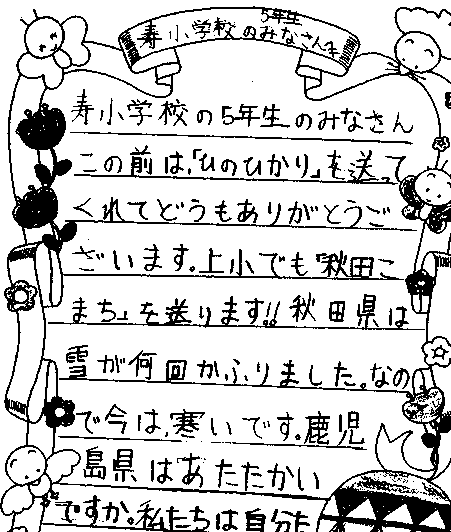 寿小学校の5年生みなさんを
寿小学校の5年生のみなさん
この前は、「ひのひかり」を送って
くれてどうもありがとうご
ざいます。上小でも「秋田こ
まち」を送ります!!秋田県は
雪が何回かふりました。なの
で今は、寒いです。鹿児
島県はあたたかい
ですか。私たちは自分た